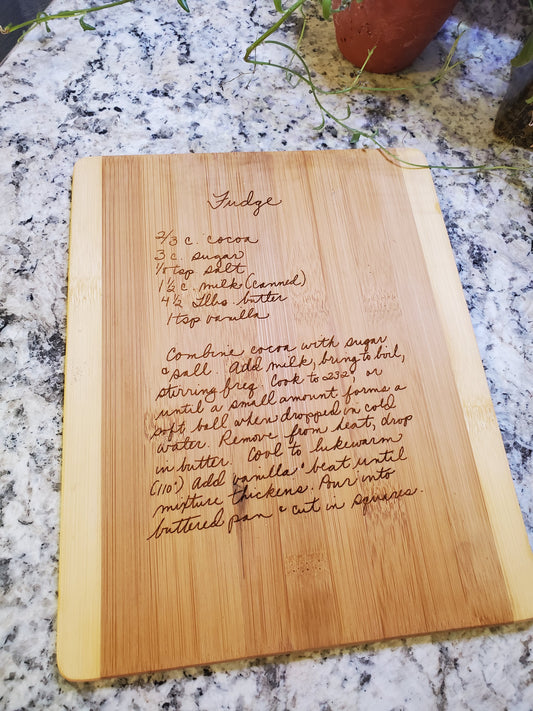 Fudge
2/3 c. cocoa
3 c. sugar
1/8 tsp salt
1 1/2 c. milk (canned)
4 1/2 Tlbs. butter
1 tsp vanilla
Combine cocoa with sugar
& salt. Add milk, bring to boil,
stirring freq. Cook to 232°, or
until a small amount forms a
soft ball when dropped in cold
water. Remove from heat, drop
in butter. Cool to lukewarm
(110°) Add vanilla & beat until
mixture thickens. Pour into
buttered pan & cut in squares.